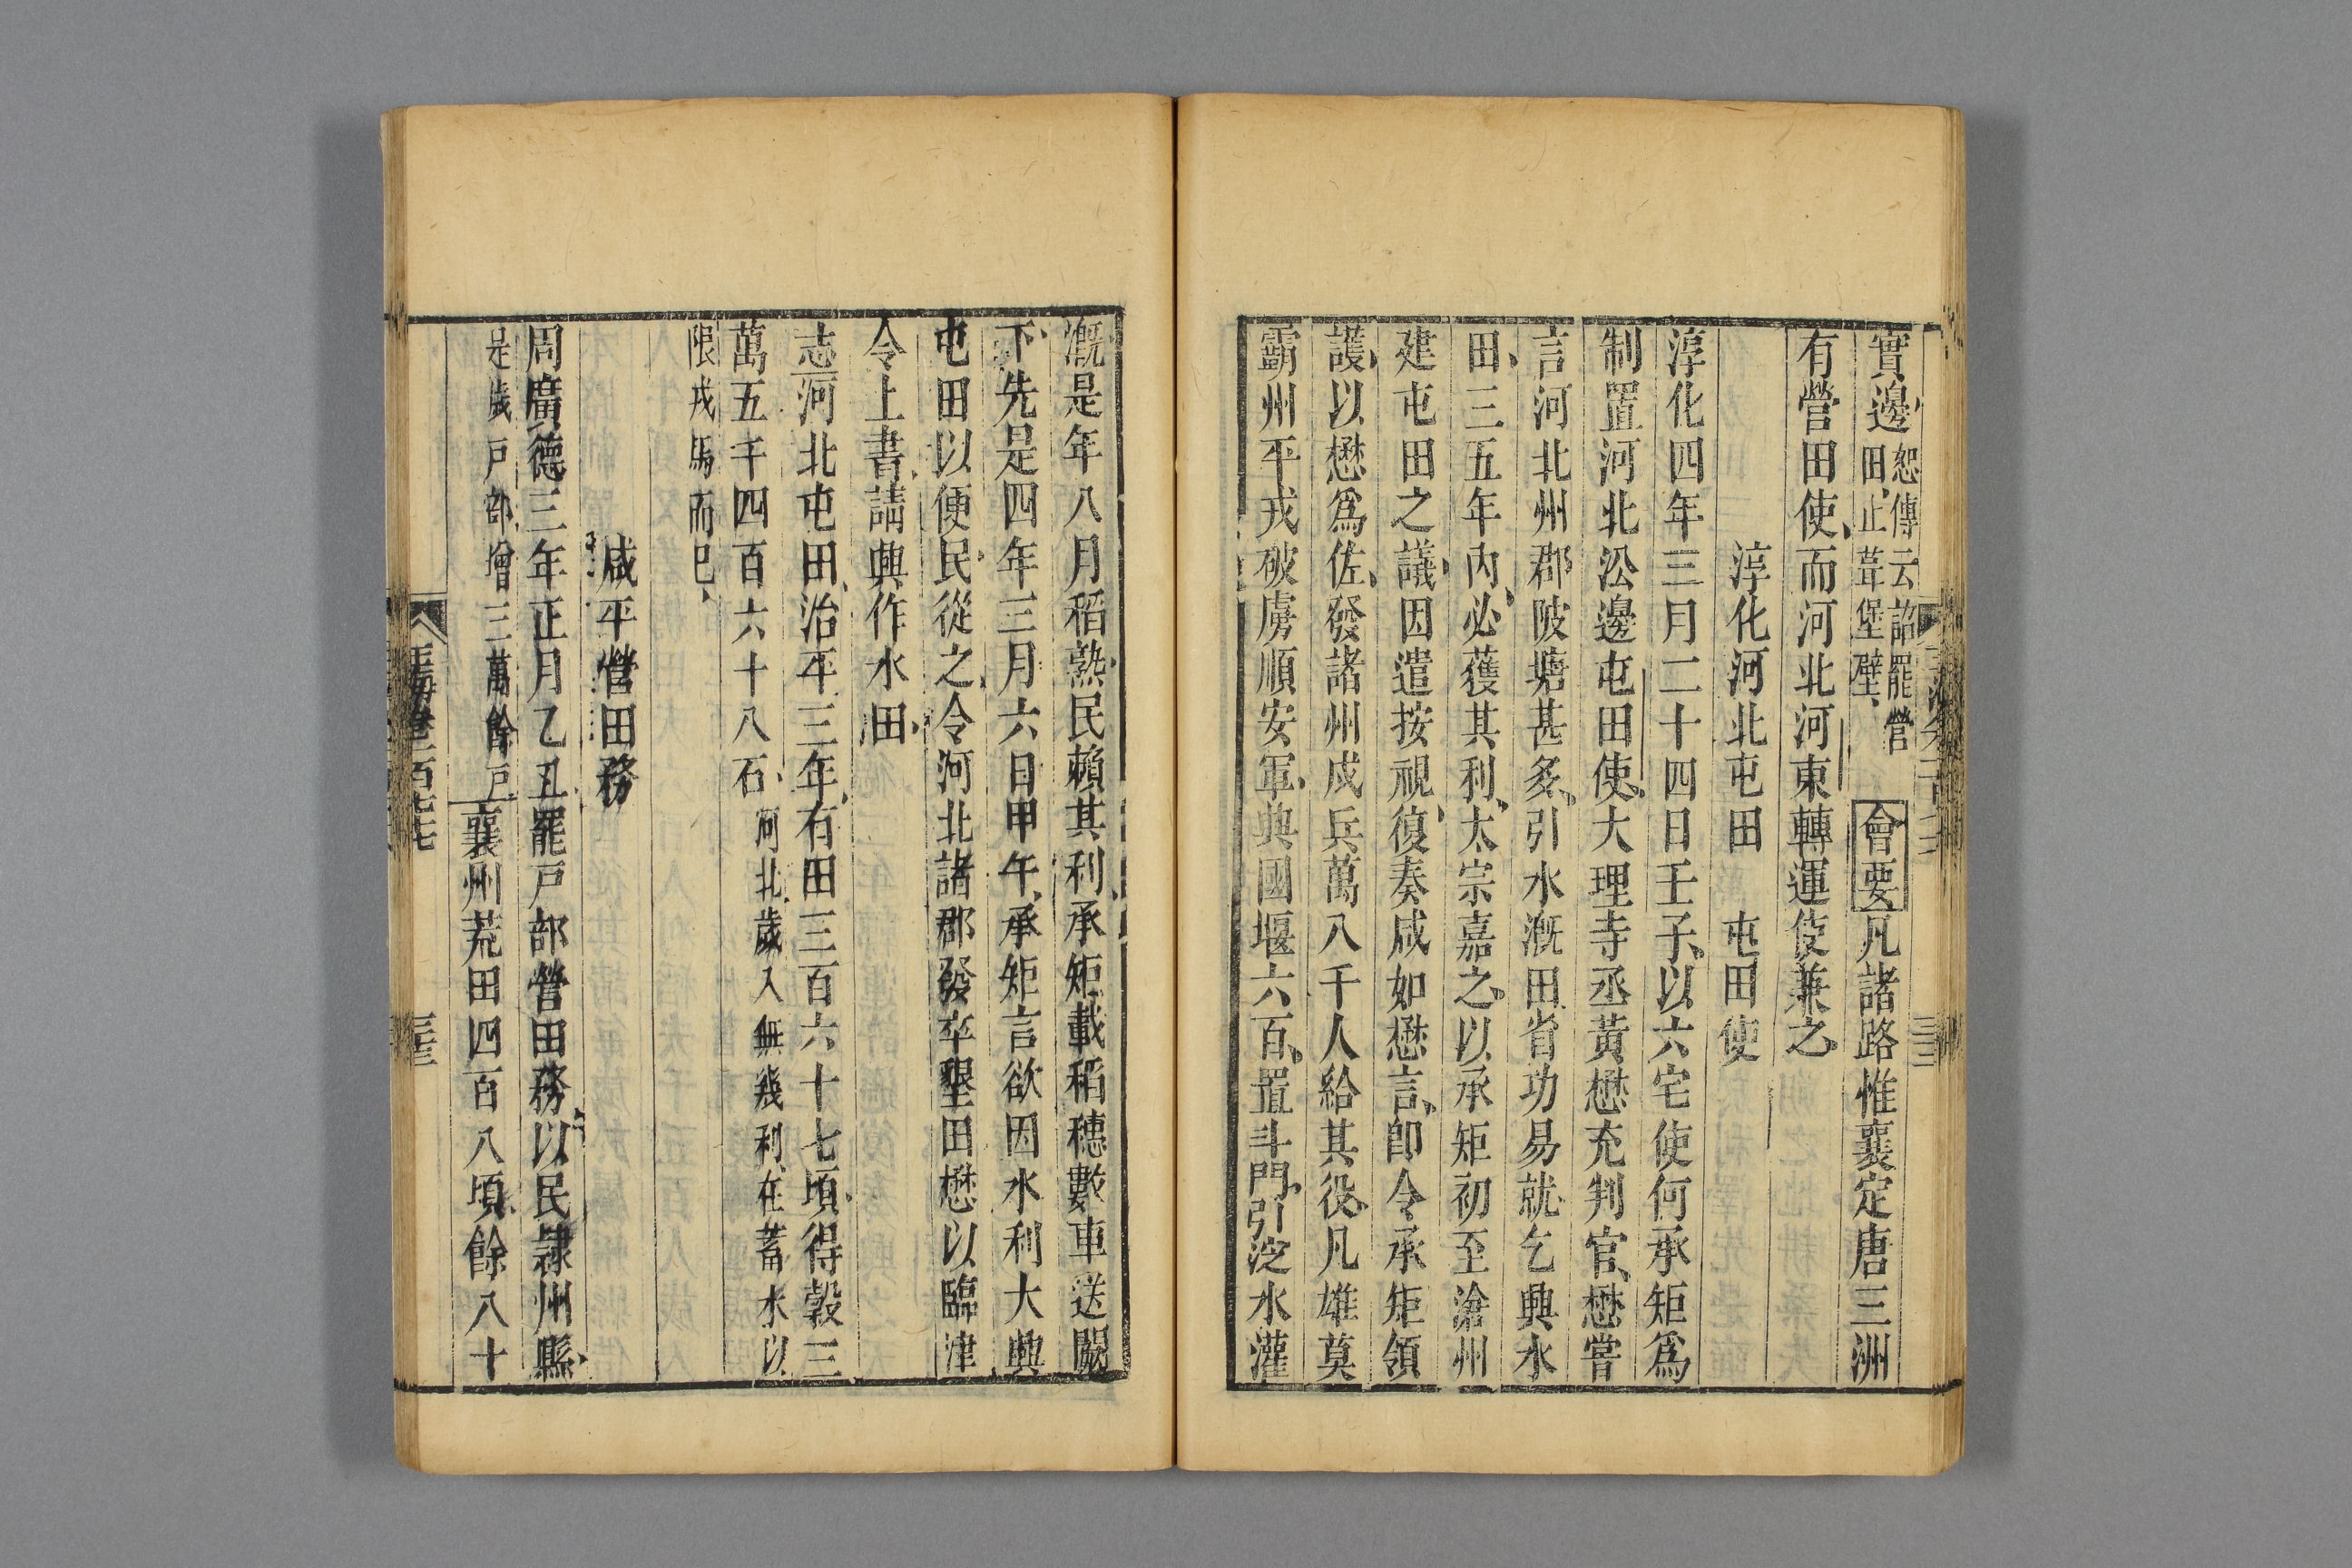 實邊恕傳云詔罷營田止葺堡壁會要凡諸路惟襄定唐三洲
有營田使而河北河東轉運使兼之
淳化河北屯田 屯田使
淳化四年三月二十四日壬子以六宅使何承矩爲
制置河北沿邊屯田使大理寺丞黃懋充判官懋嘗
言河北州郡陂塘甚多引水漑田省功易就乞興水
田三五年內必獲其利太宗嘉之以承矩初至滄州
建屯田之議因遣按視復奏咸如懋言卽令承矩領
護以懋爲佐發諸州戍兵萬八千人給其役凡雄莫
霸州平戎破虜順安軍興國堰六百置斗門引淀水灌
漑是年八月稻熟民賴其利承矩載稻穗數車送闕
下先是四年三月六日甲午承矩言欲因水利大興
屯田以便民從之令河北諸郡發卒墾田懋以臨津
令上書請興作水田
志河北屯田治平三年有田三百六十七頃得穀三
萬五千四百六十八石河北歲入無幾利在蓄水以
限戎馬而已
咸平營田務
周廣德三年正月乙丑罷戶部營田務以民隷州縣
是歲戶部增三萬餘戶襄州荒田四百八十頃餘八十
玉海卷一百七十七